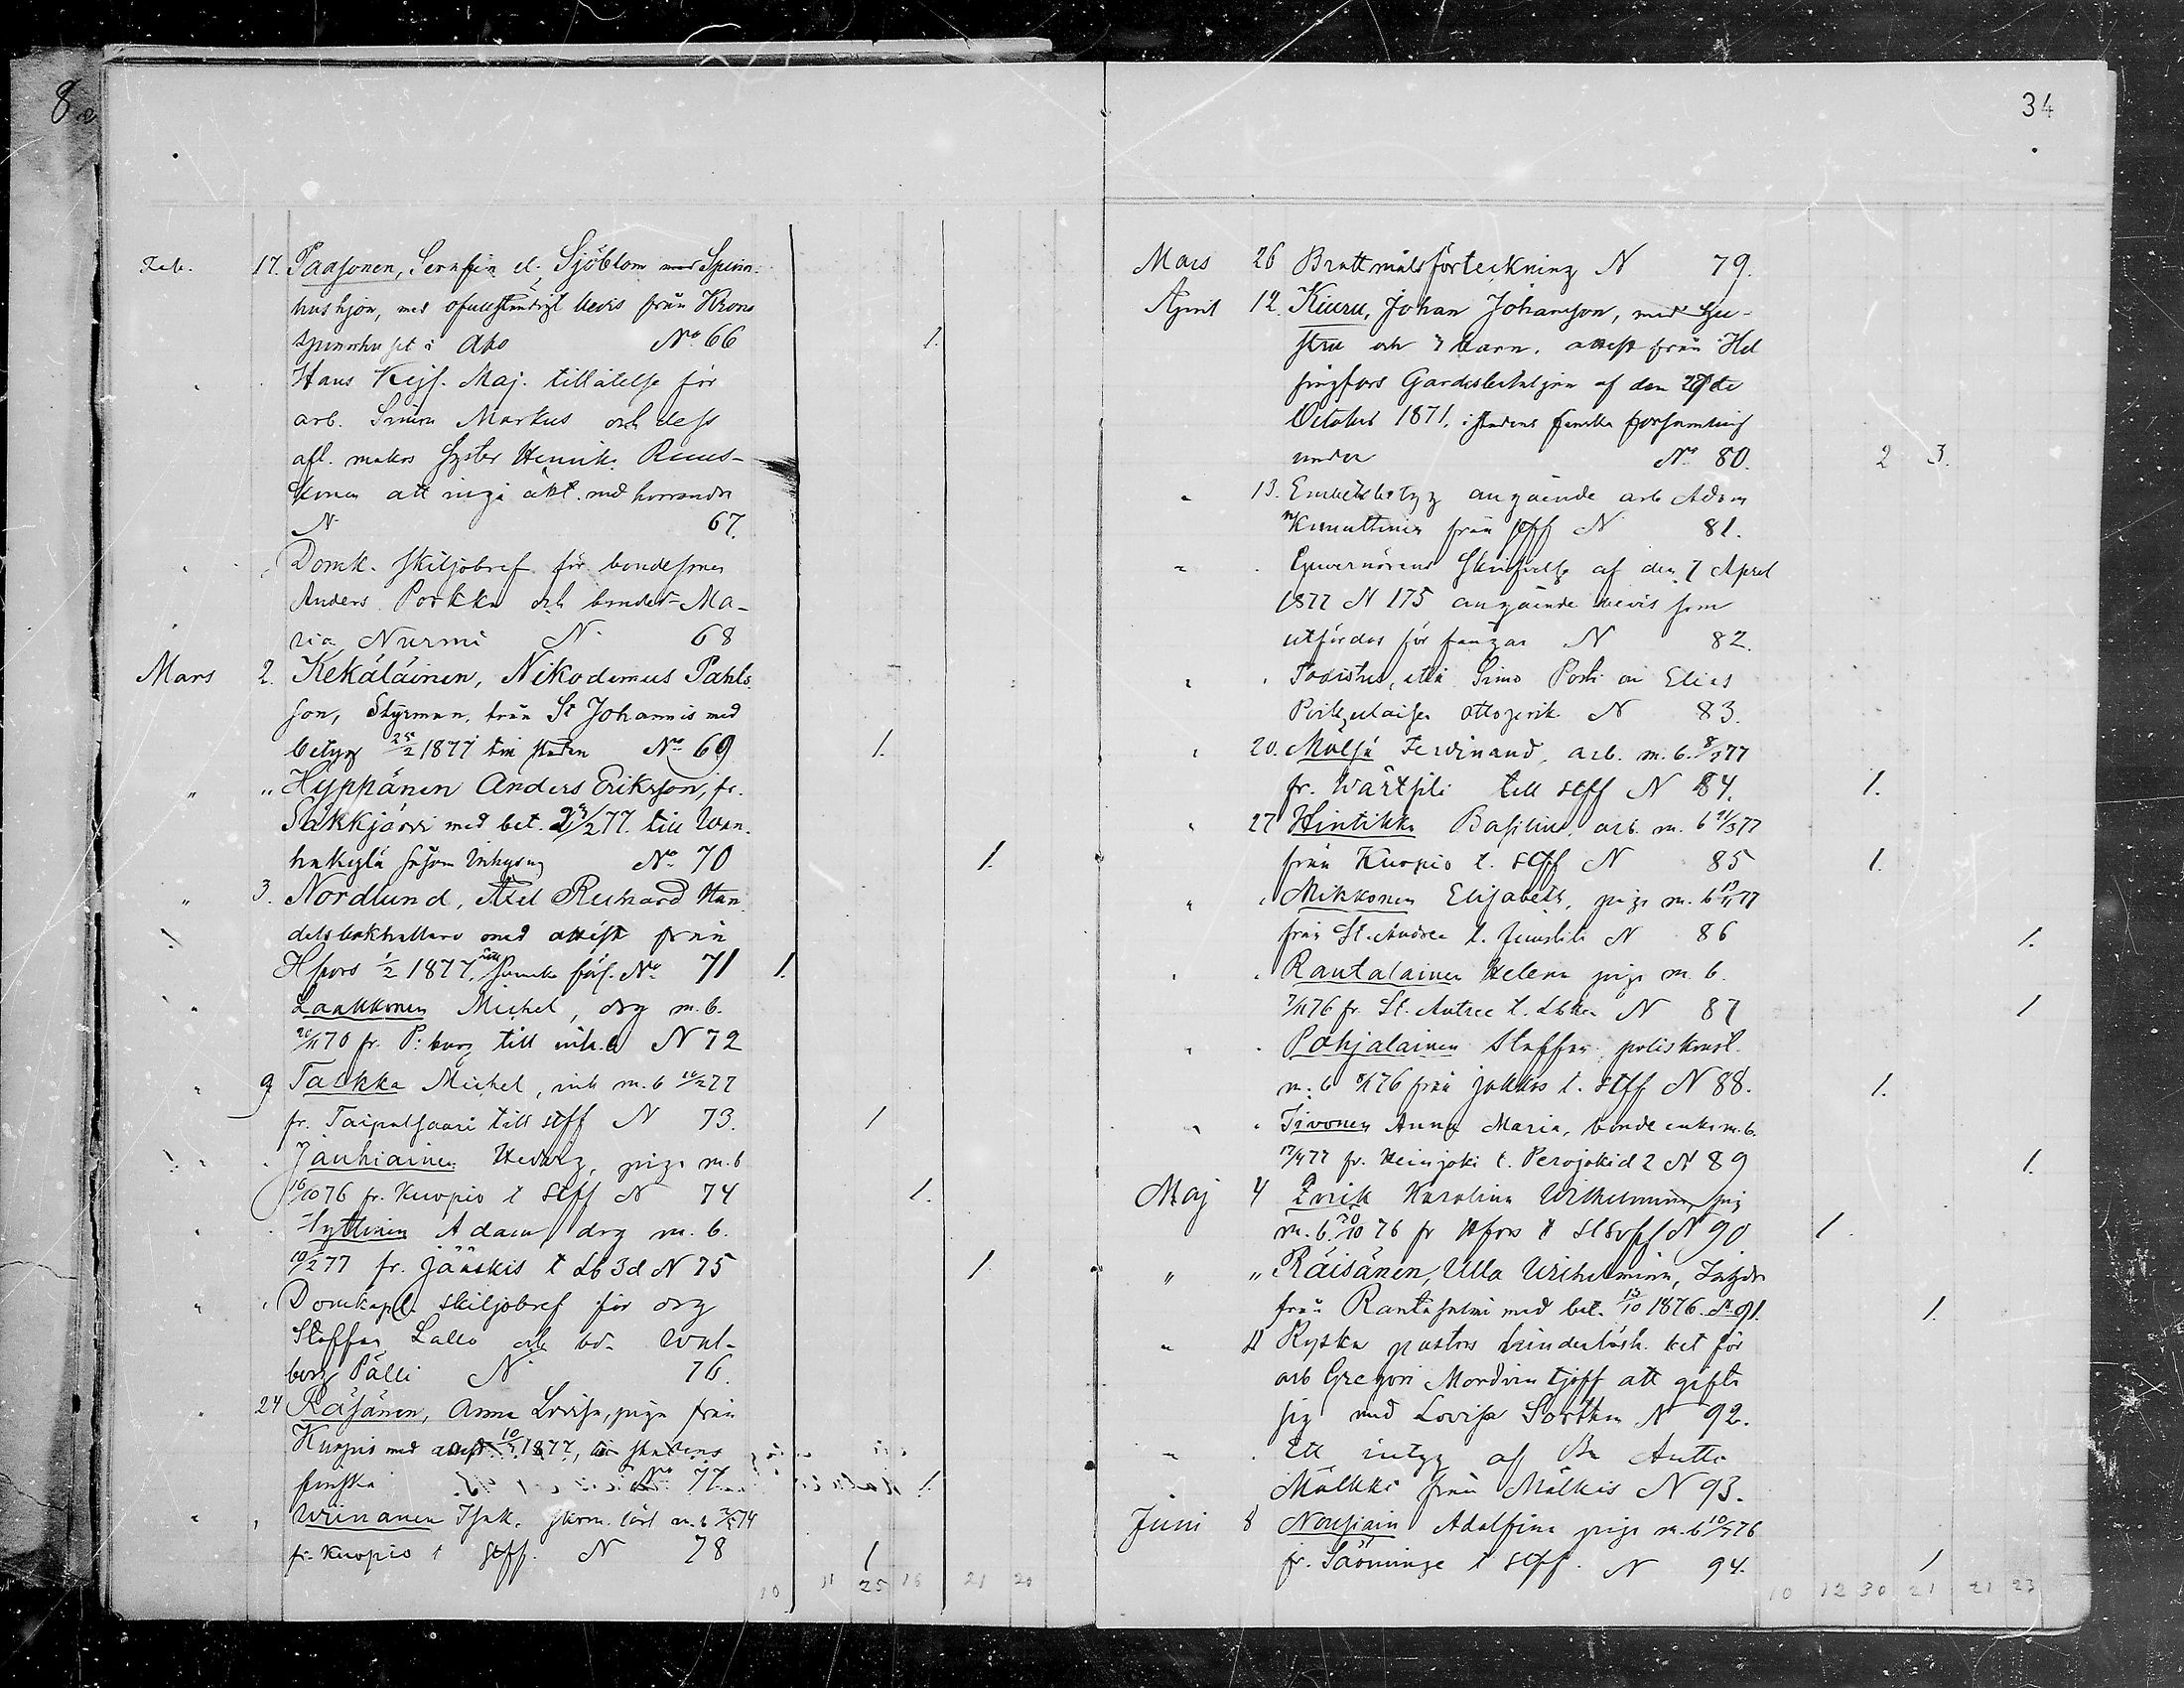 8
Feb. 17. Paasonen, Serafin el. Sjöblom med Spinn-
hushjon, med ofullständigt bevis från Krono
spinnhuset i Åbo No 66 1.
" Hans Kejs. Maj. tillåtelse för
arb. Simon Markus och dess
afl. makas syster Henrika Ruus-
konen att ingå äkt. med hvarandra
N 67.
" Domk. skiljobref för bondesonen
Anders Porkka och bonded. Ma-
ria Nurmi N 68
Mars 2. Kekäläinen, Nikodemus Pahls-
son, Styrman, från St Johannis med
betyg 25/2 1877 till staden No 69 1.
" " Hyppänen Anders Eriksson, fr.
Säkkjärvi med bet. 77. till Wan-
hakylä såsom Inhysing No 70 1.
" 3. Nordlund, Axel Richard Han-
delsbokhållare med attest från
Hfors 1/2 1877, till svenska förs. No 71 1.
" Laakkonen Michel, drg m. b.
76 fr. P:burg till N 72
" 9 Taskka Michel, inh m. b 77
fr. Taipalsaari till stff N 73. 1
" Jauhiainen Hedvig, piga m. b
16/10 76 fr. Kuopio t stff N 74 1.
" Hyttinen Adam drg m. b.
10/2 77 fr. Jääskis t Lb 3d N 75 1
" Domkapl. skiljobref för drg
Staffan Lallo och bd. Wal-
borg Pälli N 76.
" 24 Räsänen, Anna Lovisa, piga från
Kuopio med attest 1877, till stadens
finska No 77 1.
" Wiinanen Isak, skom. lärl m. b 74
fr. Kuopio t stff. N 78 1
10 11 25 16 21 20
34
Mars 26 Brottmålsförteckning N 79.
April 12. Kiuru, Johan Johansson, med hu-
stru och 3 barn. attest från Hel
singfors Gardesbataljon af den 27de
October 1871, i stadens finska församling
under No 80. 2 3.
" 13. Embetsbetyg angående arb Adam
Kunuttinen från stff N 81.
" Guvernörens skrifvelse af den 7 April
1877 N 175 angående bevis som
utfärdas för fångar N 82.
" Todistus, että Simo Posti on Elias
ottopoika N 83.
" 20. Mälsä Ferdinand, arb. m. b. 77
fr. Wärtsilä till stff N 84. 1.
" 27 Hintikka Basilius, arb. m. b 77
från Kuopio t. stff N 85 1.
" Mikkonen Elisabeth, piga m. b 77
från St. Andree t. N 86 1.
" Rautalainen Helena piga m. b.
76 fr. St. Antree t. N 87 1
" Pohjalainen Staffan poliskonst.
m. b 76 från Jokkas t. stff N 88. 1.
" Toivonen Anna Maria, bonde enka m. b.
77 fr. Heinjoki t. Perojoki d 2 N 89 1.
Maj 4 Karolina Wilhelmina, pig
m. b. 20/10 76 fr Hfors t N 90 1.
" " Räisänen, Ulla Wilhelmina,
från Rantasalmi med bet. 13/10 1876. N 91. 1.
" 11 Ryska pastors hinderlösh. bet för
arb Gregori Mordvintjeff att gifta
sig med Lovisa N 92.
" Ett intyg af Antti
Mälkki från Mälkis N 93.
Juni 8 Nousiain Adolfina piga m. b 76
fr. Sääminge t stff. N 94. 1
10 12 30 21 21 23